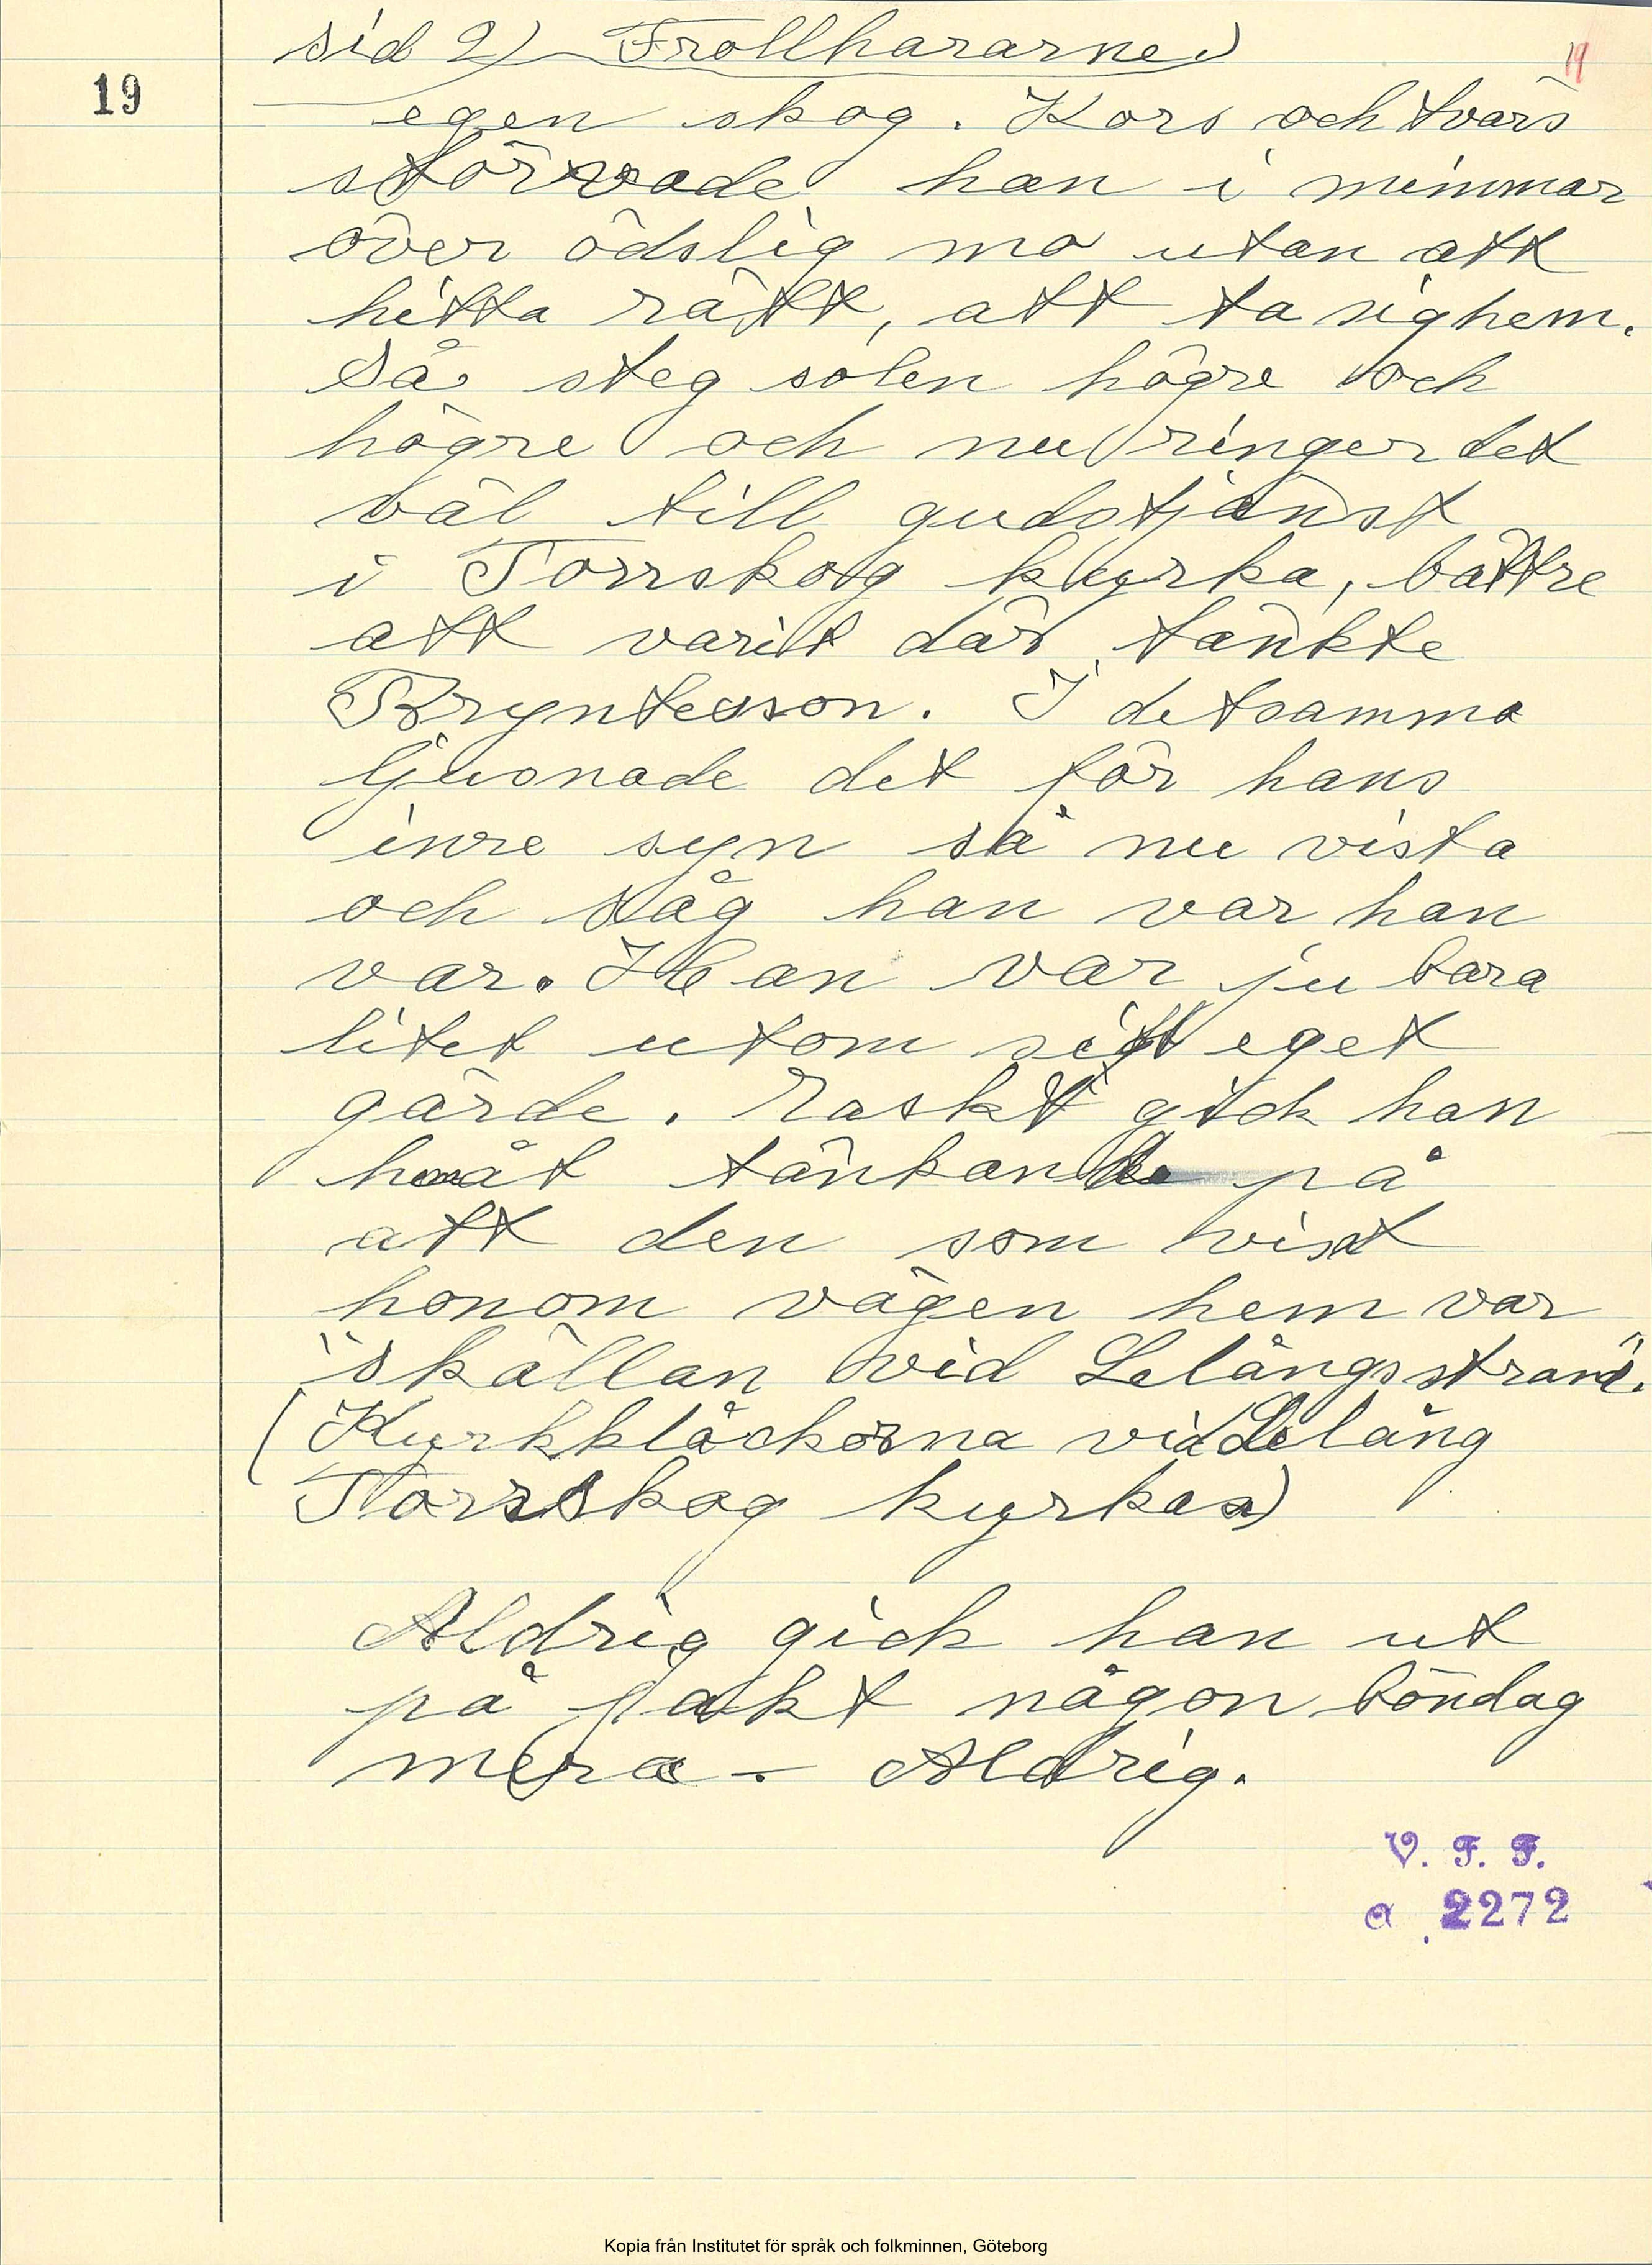 sid 2) Trollhararne
19
19
egen skog. Kors och tvärs
störvade han i mimmar
över ödslig mo utan att
hitta rätt, att ta sig hem.
Så steg solen högre och
högre och nu ringer det
väl till gudstjänst
i Torrskog kyrka, bättre
att varit där tänkte
Bryntesson. I detsamma
ljusnade det för hans
inre syn så nu vista
och såg han var han
var. Han var ju bara
litet utom sitt eget
gärde. Raskt gick han
hemåt tänkande på
att den som vist
honom vägen hem var
"skällan vid Lelångsstrand".
(Kyrkklåckorna vid Lelång
Torrskog kyrka)
Aldrig gick han ut
på jakt någon böndag
mera - Aldrig.
V. F. F.
a 2272
Kopia från Institutet för språk och folkminnen, Göteborg